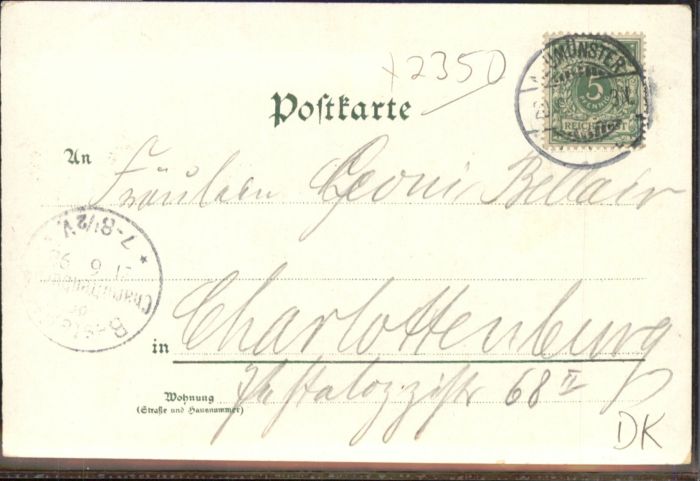 +2350
Postkarte
UMÜNSTER
5
PFENNIG
REICHSPOST
An
Fräulein Leoni Bellair
7-8½V.
Charlottenburg
in Charlottenburg
Wohnung
(Straße und Hausnummer)
Pestalozzistr 68 II
DK